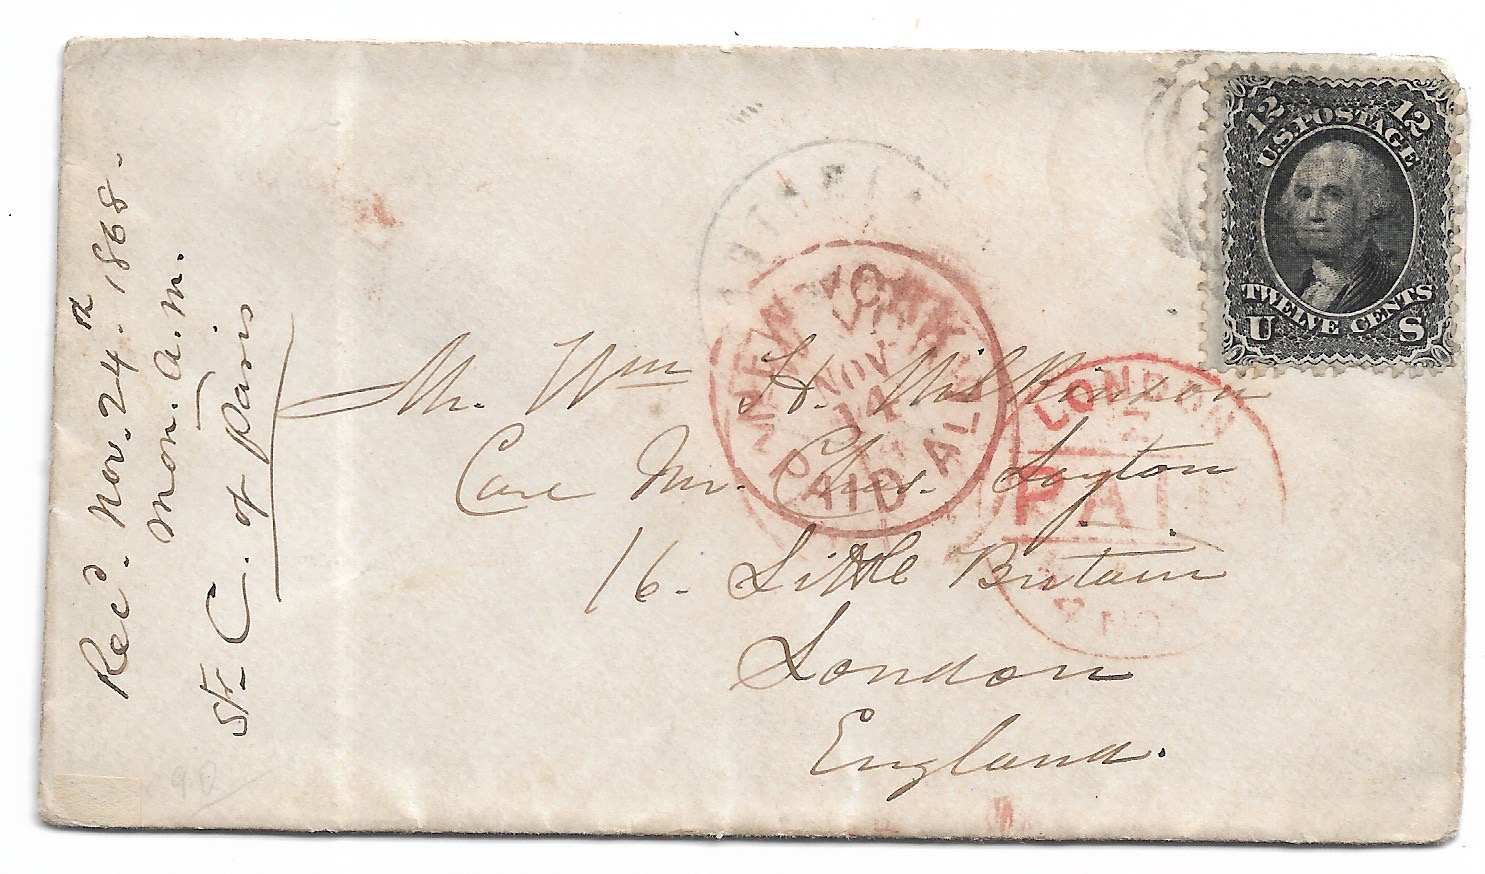 Recd. Nov. 24th 1868.
Mon. A.M.
Str. C. of Paris
12 12
U.S. POSTAGE
TWELVE CENTS
U S
NEW YORK
NOV
14
PAID ALL
LONDON
PAID
NO
Mr. Wm H. Wilkinson
Care Mr. Chas. Layton
16. Little Britain
London
England.
90